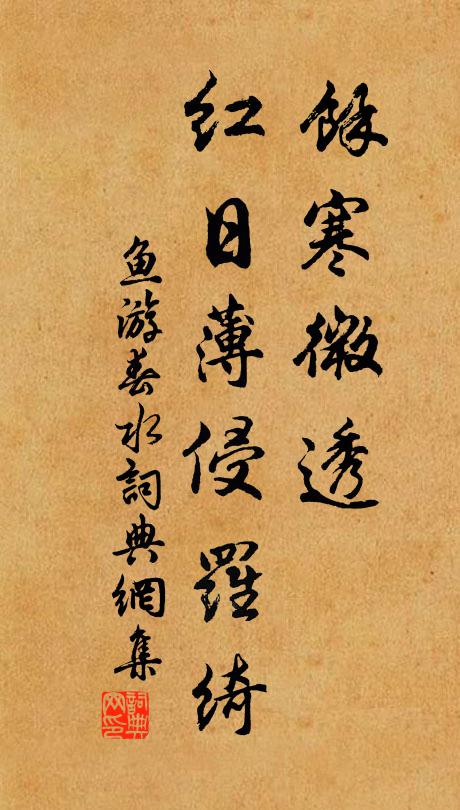 餘寒微透
紅日薄侵羅綺
魚游春水詞典網集
詞典网印